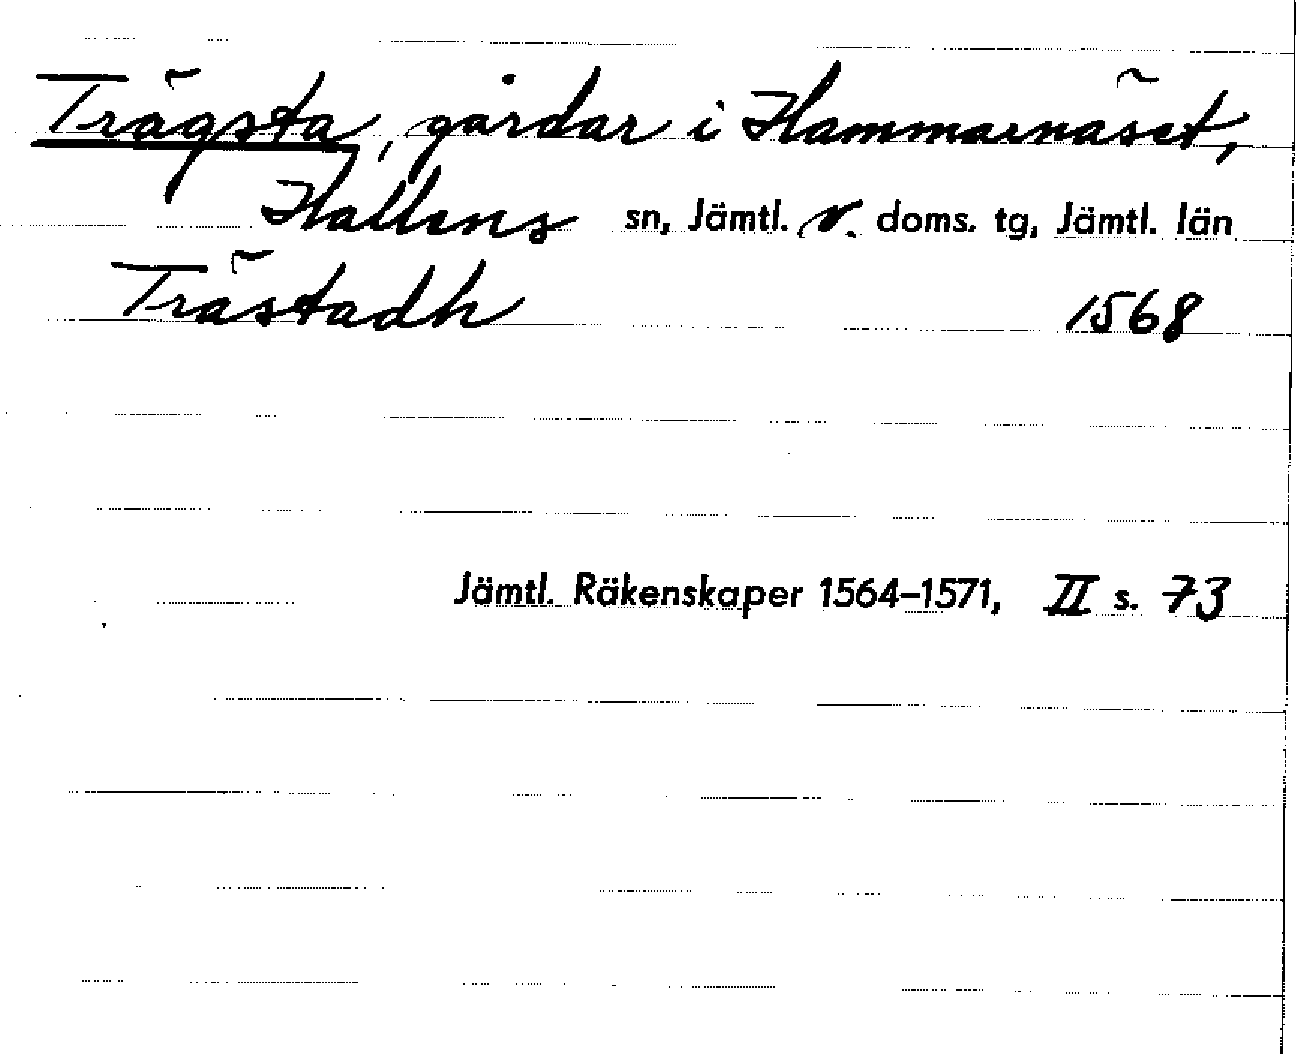 Trägsta, gårdar i Hammarnäset,
Hallens sn, Jämtl. v. doms. tg, Jämtl. län
Trästadh 1568
Jämtl. Räkenskaper 1564–1571, II s. 73